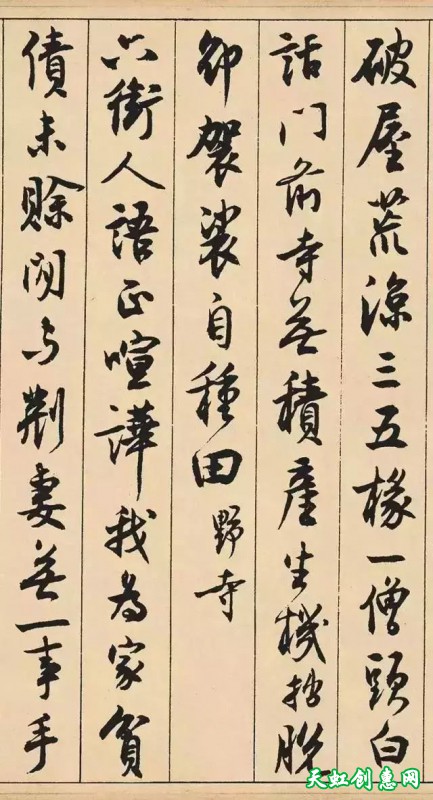 破屋荒涼三五椽一僧頭白
話門前寺無積産生機拙脱
却袈裟自種田 野寺
六街人語正喧譁我為家貧
債未賒閒与荊妻無一事手
天虹创惠网